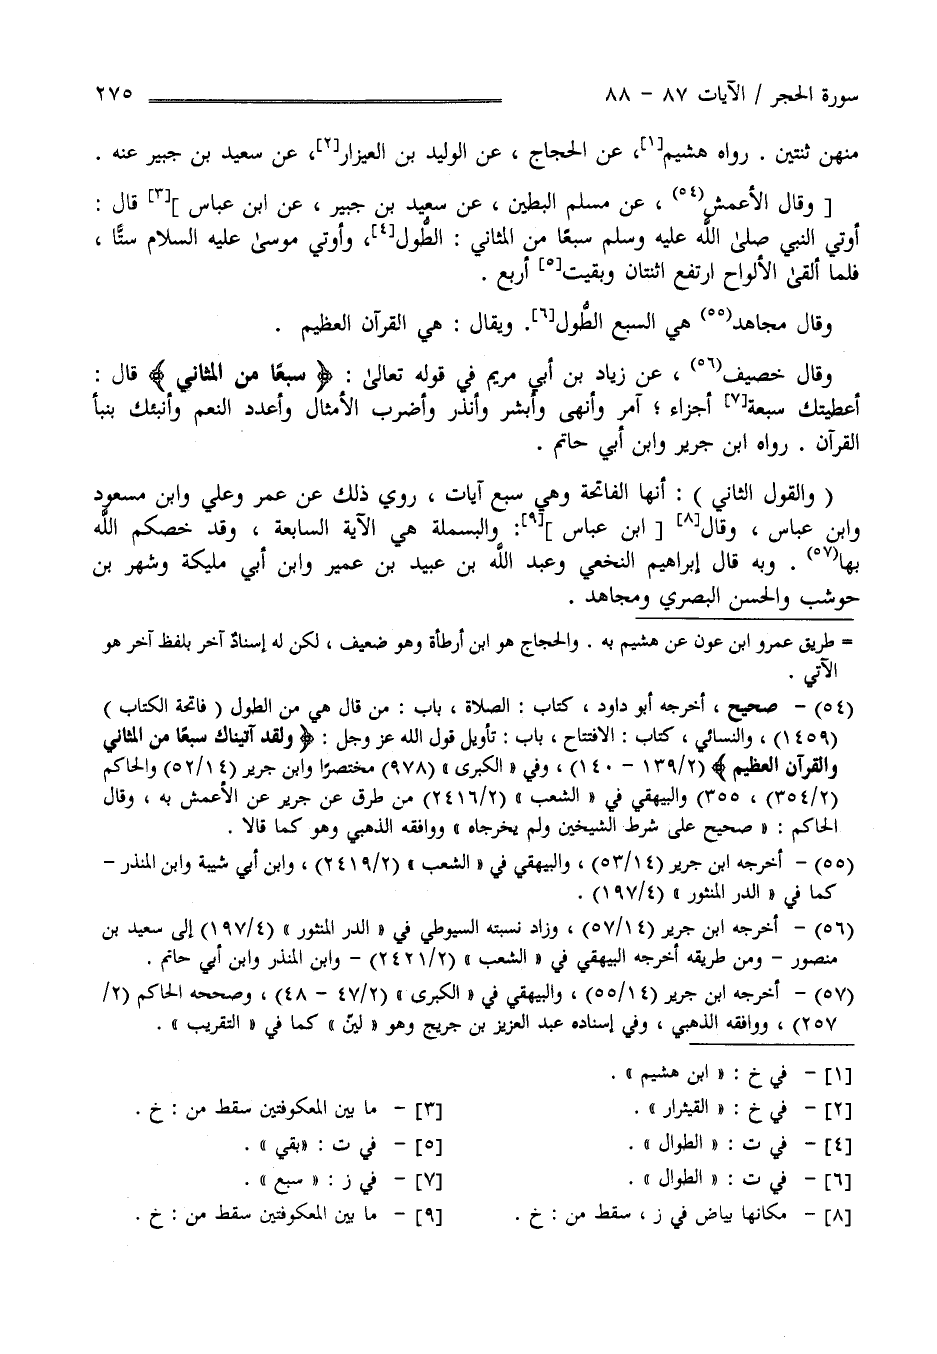 سورة الحجر / الآيات ٨٧ - ٨٨ ٢٧٥
منهن ثنتين . رواه هشيم[١]، عن الحجاج ، عن الوليد بن العيزار[٢]، عن سعيد بن جبير عنه .
[ وقال الأعمش(٥٤) ، عن مسلم البطين ، عن سعيد بن جبير ، عن ابن عباس ][٣] قال :
أوتي النبي صلى الله عليه وسلم سبعًا من المثاني : الطُّول[٤]، وأوتي موسى عليه السلام ستًّا ،
فلما ألقى الألواح ارتفع اثنتان وبقيت[٥] أربع .
وقال مجاهد(٥٥) هي السبع الطُّول[٦]. ويقال : هي القرآن العظيم .
وقال خصيف(٥٦) ، عن زياد بن أبي مريم في قوله تعالى : ﴿ سبعًا من المثاني ﴾ قال :
أعطيتك سبعة[٧] أجزاء ؛ آمر وأنهى وأبشر وأنذر وأضرب الأمثال وأعدد النعم وأنبئك بنبأ
القرآن . رواه ابن جرير وابن أبي حاتم .
( والقول الثاني ) : أنها الفاتحة وهي سبع آيات ، روي ذلك عن عمر وعلي وابن مسعود
وابن عباس ، وقال[٨] [ ابن عباس ][٩]: والبسملة هي الآية السابعة ، وقد خصكم الله
بها(٥٧) . وبه قال إبراهيم النخعي وعبد الله بن عبيد بن عمير وابن أبي مليكة وشهر بن
حوشب والحسن البصري ومجاهد .
= طريق عمرو ابن عون عن هشيم به . والحجاج هو ابن أرطأة وهو ضعيف ، لكن له إسنادٌ آخر بلفظ آخر هو
الآتي .
(٥٤) - صحيح ، أخرجه أبو داود ، كتاب : الصلاة ، باب : من قال هي من الطول ( فاتحة الكتاب )
(١٤٥٩) ، والنسائي ، كتاب : الافتتاح ، باب : تأويل قول الله عز وجل : ﴿ ولقد آتيناك سبعًا من المثاني
والقرآن العظيم ﴾ (١٣٩/٢ - ١٤٠) ، وفي « الكبرى » (٩٧٨) مختصرًا وابن جرير (٥٢/١٤) والحاكم
(٣٥٤/٢) ، ٣٥٥) والبيهقي في « الشعب » (٢٤١٦/٢) من طرق عن جرير عن الأعمش به ، وقال
الحاكم : « صحيح على شرط الشيخين ولم يخرجاه » ووافقه الذهبي وهو كما قالا .
(٥٥) - أخرجه ابن جرير (٥٣/١٤) ، والبيهقي في « الشعب » (٢٤١٩/٢) ، وابن أبي شيبة وابن المنذر -
كما في « الدر المنثور » (١٩٧/٤) .
(٥٦) - أخرجه ابن جرير (٥٧/١٤) ، وزاد نسبته السيوطي في « الدر المنثور » (١٩٧/٤) إلى سعيد بن
منصور - ومن طريقه أخرجه البيهقي في « الشعب » (٢٤٢١/٢) - وابن المنذر وابن أبي حاتم .
(٥٧) - أخرجه ابن جرير (٥٥/١٤) ، والبيهقي في « الكبرى » (٤٧/٢ - ٤٨) ، وصححه الحاكم (٢/
٢٥٧) ، ووافقه الذهبي ، وفي إسناده عبد العزيز بن جريج وهو « لينٌ » كما في « التقريب » .
[١] - في خ : « ابن هشيم » .
[٢] - في خ : « القيثرار » . [٣] - ما بين المعكوفتين سقط من : خ .
[٤] - في ت : « الطوال » . [٥] - في ت : «بقي» .
[٦] - في ت : « الطوال » . [٧] - في ز : « سبع » .
[٨] - مكانها بياض في ز ، سقط من : خ . [٩] - ما بين المعكوفتين سقط من : خ .